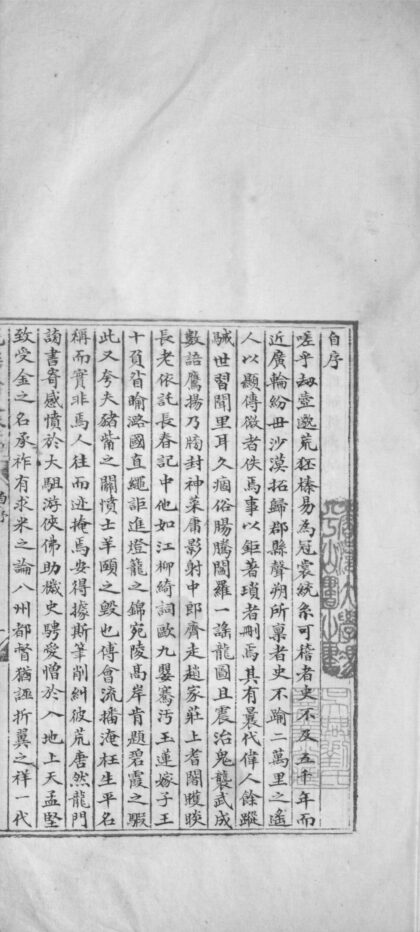 自序
嗟乎劫壹邈荒狉榛易為冠裳統系可稽者史不及五千年而
近廣輪紛沙漠拓歸郡縣聲朔所稟者史不踰二萬里之遙
人以顯傳微者佚焉事以鉅著瑣者刪焉其有曩代偉人餘蹤
駴世習聞里耳久痼俗腸騰閻羅一謠龍圖且震治鬼襲武成
數語鷹揚乃封神菜庸影射中郎齊走趙家莊上耆闍矆睒
長老依託長春記中他如江柳綺詞歐九嬰騫汚玉蓮嫁子王
十負省喻潞國直繩詎進燈籠之錦宛陵高岸肯題碧霞之騢
此又夸夫豬觜之關憤士羊頤之毀也傅會流播淹枉生平名
稱而實非焉人往而迹掩焉安得據斯筆削糾彼荒唐然龍門
謗書寄感憤於大駔游俠佛助穢史騁愛憎於入地上天孟堅
致受金之名承祚有求米之論八州都督猶誣折翼之祥一代